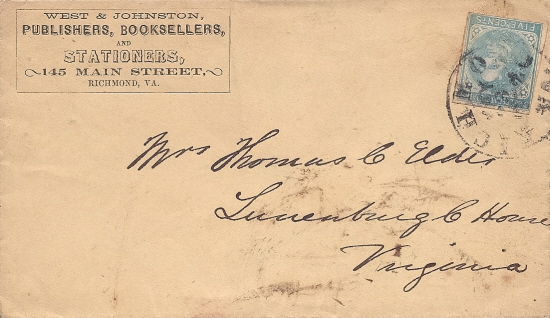 WEST & JOHNSTON,
PUBLISHERS, BOOKSELLERS,
AND
STATIONERS,
145 MAIN STREET,
RICHMOND, VA.
FIVE CENTS
Mrs Thomas C Elder
Lunenburg C House
Virginia